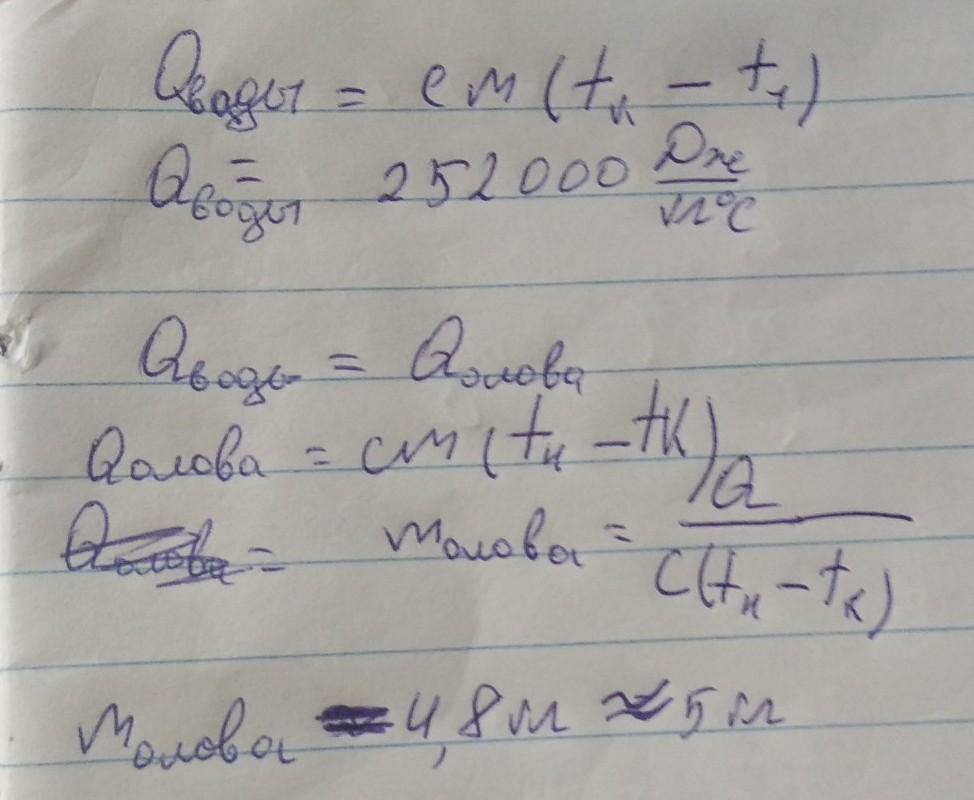 Qводы = cм (tк − tн)
Qводы = 252000 Дж/м°C
Qводы = Qолова
Qолова = cм (tн − tк)
mолова = Q/C(tн − tк)
mолова = 4,8 м ≈ 5 м